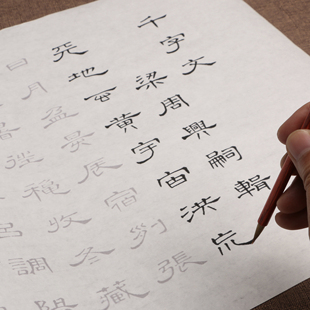 千字文
梁周興嗣輯
天地玄黃宇宙洪
日月盈昃辰宿列張
暑往秋收冬藏
呂調陽